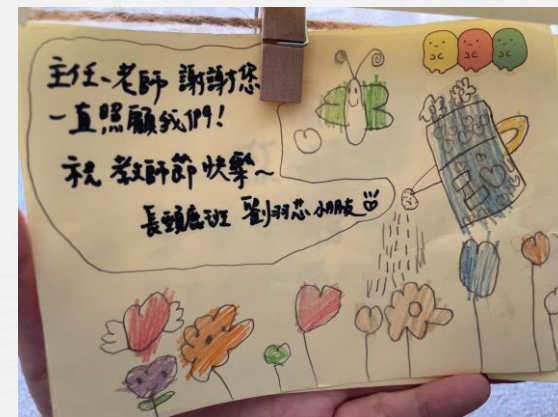 主任、老師 謝謝您
一直照顧我們!
祝 教師節快樂~
長頸鹿班 劉羽芯小朋友